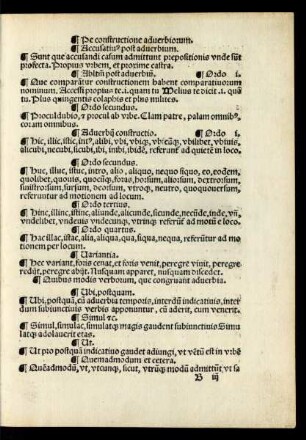 ¶ De constructione aduerbiorum.
¶ Accusatiuꝰ post aduerbium.
¶ Sunt que accusandi casum admittunt prepositionis vnde sūt
profecta. Propius vrbem, et proxime castra.
¶ Ablatiuꝰ post aduerbiū. ¶ Ordo .i.
¶ Que comparātur constructionem habent comparatiuorum
nominum. Accessi propius te .i. quam tu Melius te dicit .i. quā
tu. Plus quingentis colaphis et plus milites.
¶ Ordo secundus.
¶ Procul dubio, ⁊ procul ab vrbe. Clam patre, palam omnibꝰ,
coram omnibus.
¶ Aduerbiū constructio. ¶ Ordo .i.
¶ Hic, illic, istic, alibi, vbi, vbiqꝫ, vbicūqꝫ, vbilibet, vbiuis,
alicubi, necubi, sicubi, ibi, inibi, ibidē, referunt̄ ad quietē in loco.
¶ Ordo secundus.
¶ Huc, illuc, istuc, intro, alio, aliquo, nequo siquo, eo, eodem,
quolibet, quouis, quocūqꝫ, foras, horsum, aliorsum, dextrorsum,
sinistrorsum, sursum, deorsum, vtroqꝫ, neutro, quoquouersum,
referuntur ad motionem ad locum.
¶ Ordo tertius.
¶ Hinc, illinc, istinc, aliunde, alicunde, sicunde, necūde, inde, vn̄,
vndelibet, vndeuis vndecunqꝫ, vtrinqꝫ referūt̄ ad motū e loco.
¶ Ordo quartus.
¶ Hac illac, istac, alia, aliqua, qua, siqua, nequa, referūtur ad mo
tionem per locum.
¶ Uariantia.
¶ Hec variant, foris cenat, et foris venit, peregre viuit, peregre
redijt, peregre abijt. Nusquam apparet, nusquam discedet.
¶ Quibus modis verborum, que congruant aduerbia.
¶ Ubi, postquam.
¶ Ubi, postquā, cū aduerbia temporis, interdū indicatiuis, inter
dum subiunctiuis verbis apponuntur, cū aderit, cum venerit.
¶ Simul ⁊c.
¶ Simul, simulac, simulatqꝫ magis gaudent subiunctiuis Simul
atqꝫ adolauerit etas.
¶ Ut.
¶ Ut pro postquā indicatiuo gaudet adiungi, vt vētū est in vrbē
¶ Quemadmodum et cetera.
¶ Quēadmodū, vt, vtcunqꝫ, sicut, vtrūqꝫ modū admittūt, vt sa
B iij